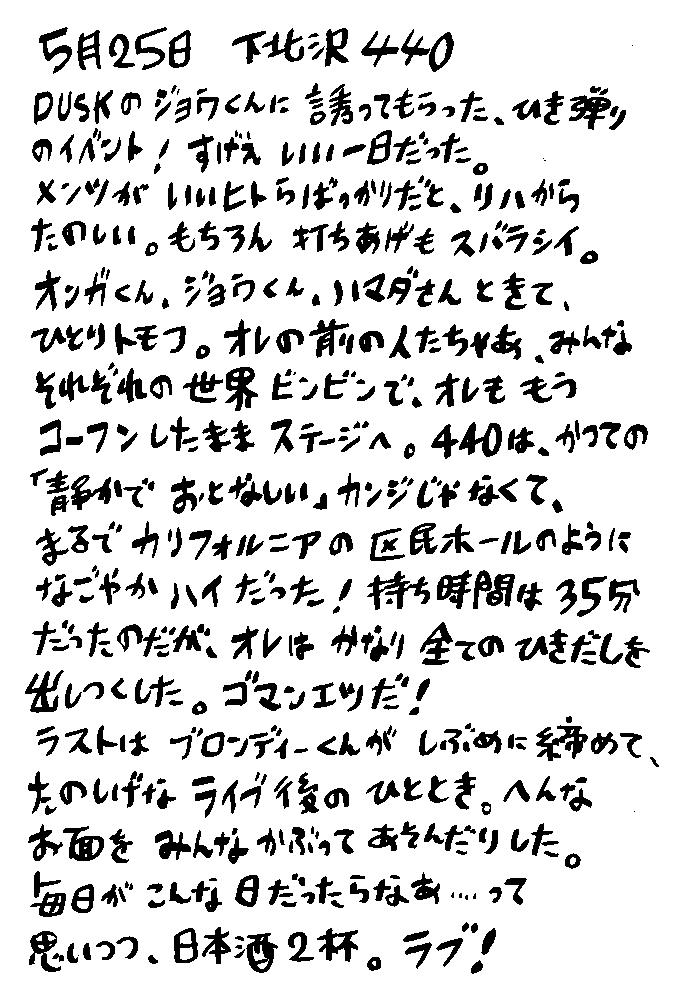 5月25日 下北沢440
DUSKのジョウくんに誘ってもらった、ひき弾り
のイベント！すげえ いい一日だった。
メンツが いいヒトらばっかりだと、リハから
たのしい。もちろん 打ちあげも スバラシイ。
オンガくん、ジョウくん、ハマダさん ときて、
ひとりトモフ。オレの前の人たちゃあ、みんな
それぞれの世界 ビンビンで、オレも もう
コーフンしたまま ステージへ。440は、かつての
「静かで おとなしい」カンジじゃなくて、
まるで カリフォルニアの 区民ホールのように
なごやか ハイだった！持ち時間は 35分
だったのだが、オレは かなり 全ての ひきだしを
出しつくした。ゴマンエツだ！
ラストは ブロンディーくんが しぶめに 締めて、
たのしげな ライブ後の ひととき。へんな
お面を みんな かぶって あそんだりした。
毎日が こんな 日だったらなあ…って
思いつつ、日本酒2杯。ラブ！